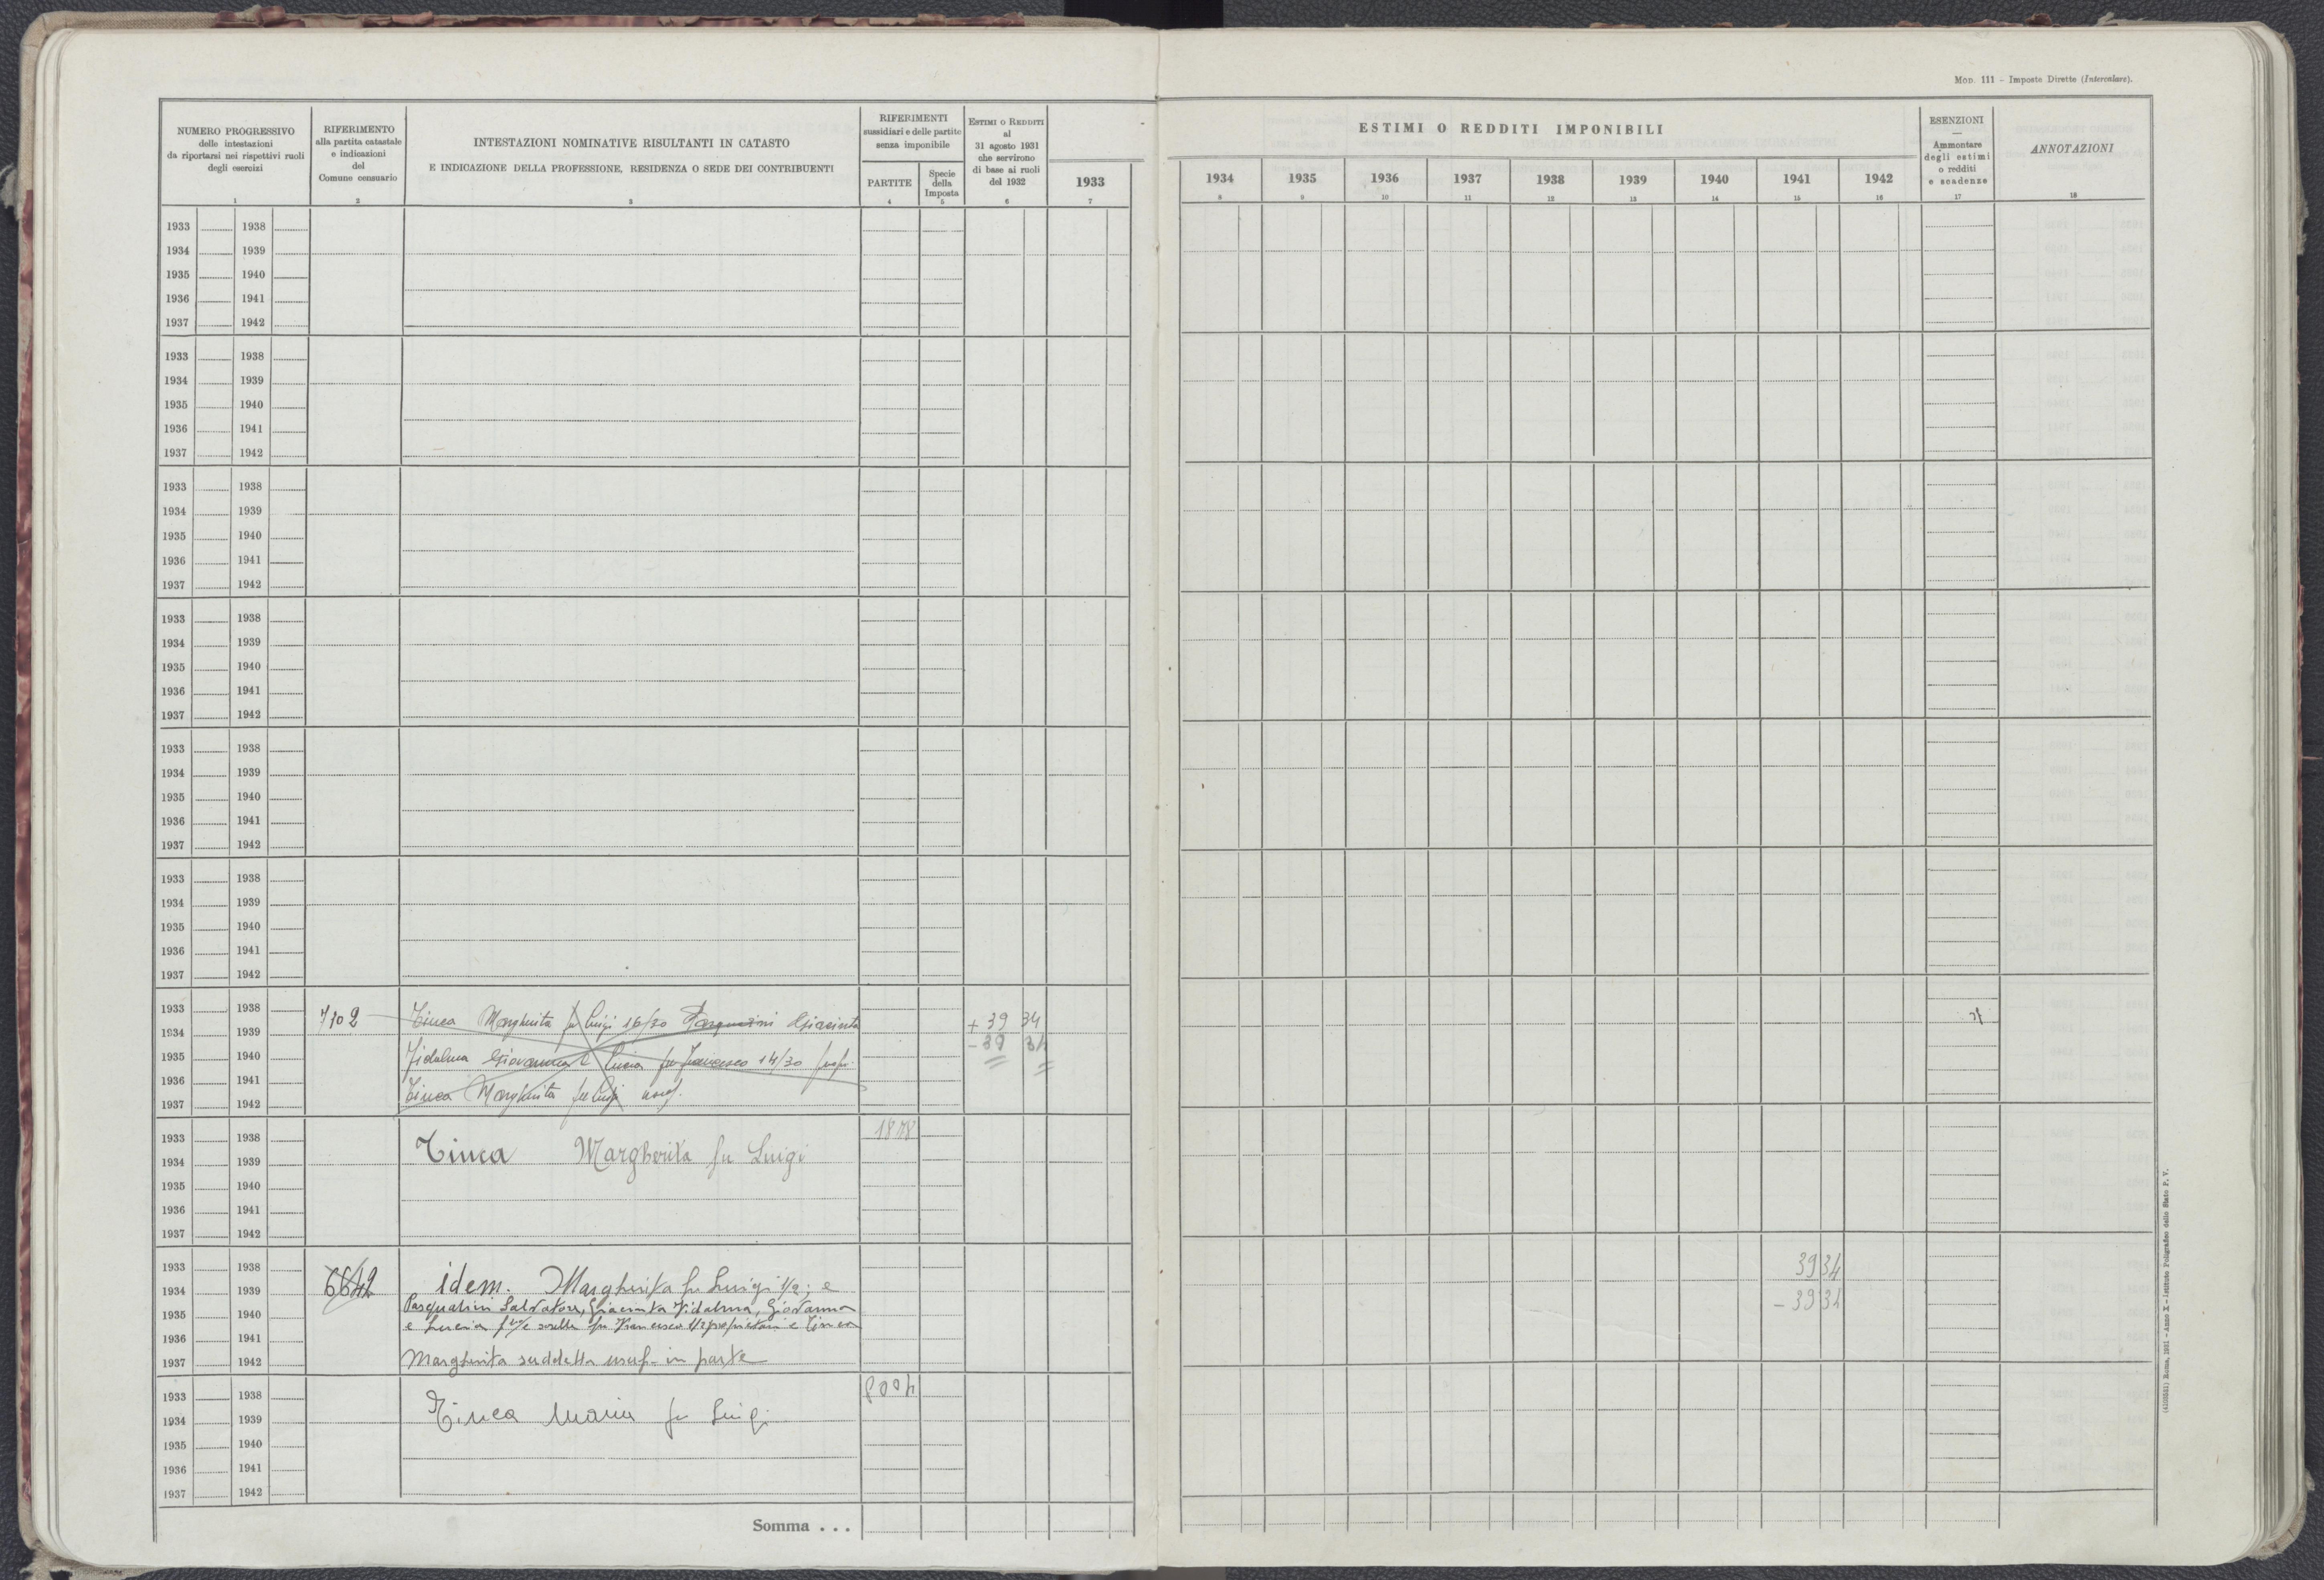 MOD. 111 - Imposte Dirette (Intercalare).
NUMERO PROGRESSIVO
delle intestazioni
da riportarsi nei rispettivi ruoli
degli esercizi
1
RIFERIMENTO
alla partita catastale
e indicazioni
del
Comune censuario
2
INTESTAZIONI NOMINATIVE RISULTANTI IN CATASTO
E INDICAZIONE DELLA PROFESSIONE, RESIDENZA O SEDE DEI CONTRIBUENTI
3
RIFERIMENTI
sussidiari e delle partite
senza imponibile
PARTITE
4
Specie
della
Imposta
5
ESTIMI O REDDITI
al
31 agosto 1931
che servirono
di base ai ruoli
del 1932
6
1933
7
ESTIMI O REDDITI IMPONIBILI
1934 1935 1936 1937 1938 1939 1940 1941 1942
8 9 10 11 12 13 14 15 16
ESENZIONI
—
Ammontare
degli estimi
o redditi
e scadenze
17
ANNOTAZIONI
18
1933 1938
1934 1939
1935 1940
1936 1941
1937 1942
1933 1938
1934 1939
1935 1940
1936 1941
1937 1942
1933 1938
1934 1939
1935 1940
1936 1941
1937 1942
1933 1938
1934 1939
1935 1940
1936 1941
1937 1942
1933 1938
1934 1939
1935 1940
1936 1941
1937 1942
1933 1938
1934 1939
1935 1940
1936 1941
1937 1942
1933 1938
1934 1939
1935 1940
1936 1941
1937 1942
7102
Tinca Margherita fu Luigi 16/30 Pasqualini Giacinta
Fidalma Giovanna e Lucia fu Francesco 14/30 propr.
Tinca Margherita fu Luigi usuf.
+ 39 34
- 39 34
1933 1938
1934 1939
1935 1940
1936 1941
1937 1942
Tinca Margherita fu Luigi
1878
1933 1938
1934 1939
1935 1940
1936 1941
1937 1942
6642
idem. Margherita fu Luigi 1/2; e
Pasqualini Salvatore, Giacinta Fidalma, Giovanna
e Lucia f.llo e sorelle fu Francesco 1/2 proprietari e Tinca
Margherita suddetta usuf. in parte
39 34
- 39 34
1933 1938
1934 1939
1935 1940
1936 1941
1937 1942
Tinca Maria fu Luigi
Somma . . .
(4103581) Roma, 1931 - Anno X - Istituto Poligrafico dello Stato P. V.